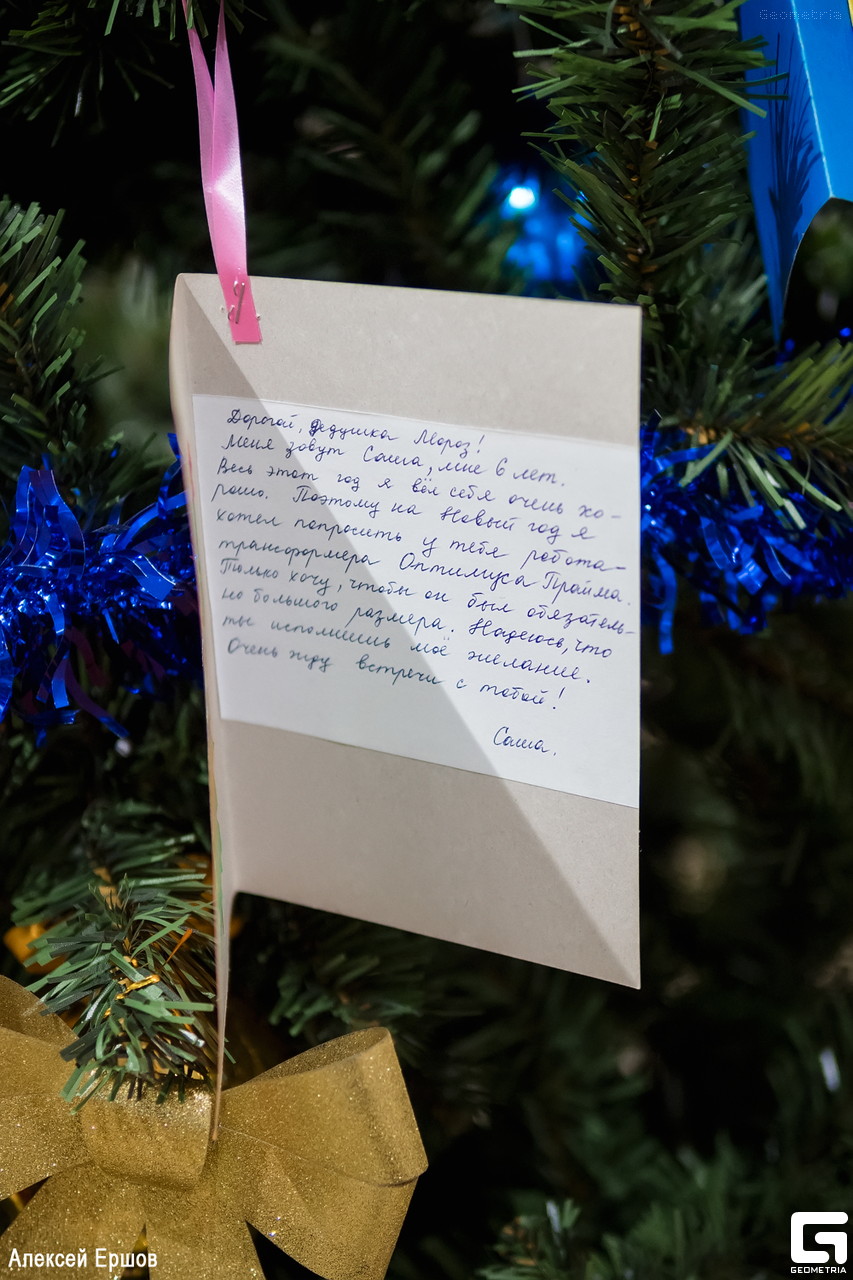 Geometria
Дорогой, Дедушка Мороз!
Меня зовут Саша, мне 6 лет.
Весь этот год я вёл себя очень хо-
рошо. Поэтому на Новый год я
хотел попросить у тебя робота-
трансформера Оптимуса Прайма.
Только хочу, чтобы он был обязатель-
но большого размера. Надеюсь, что
ты исполнишь моё желание.
Очень жду встречи с тобой!
Саша.
Алексей Ершов
GEOMETRIA